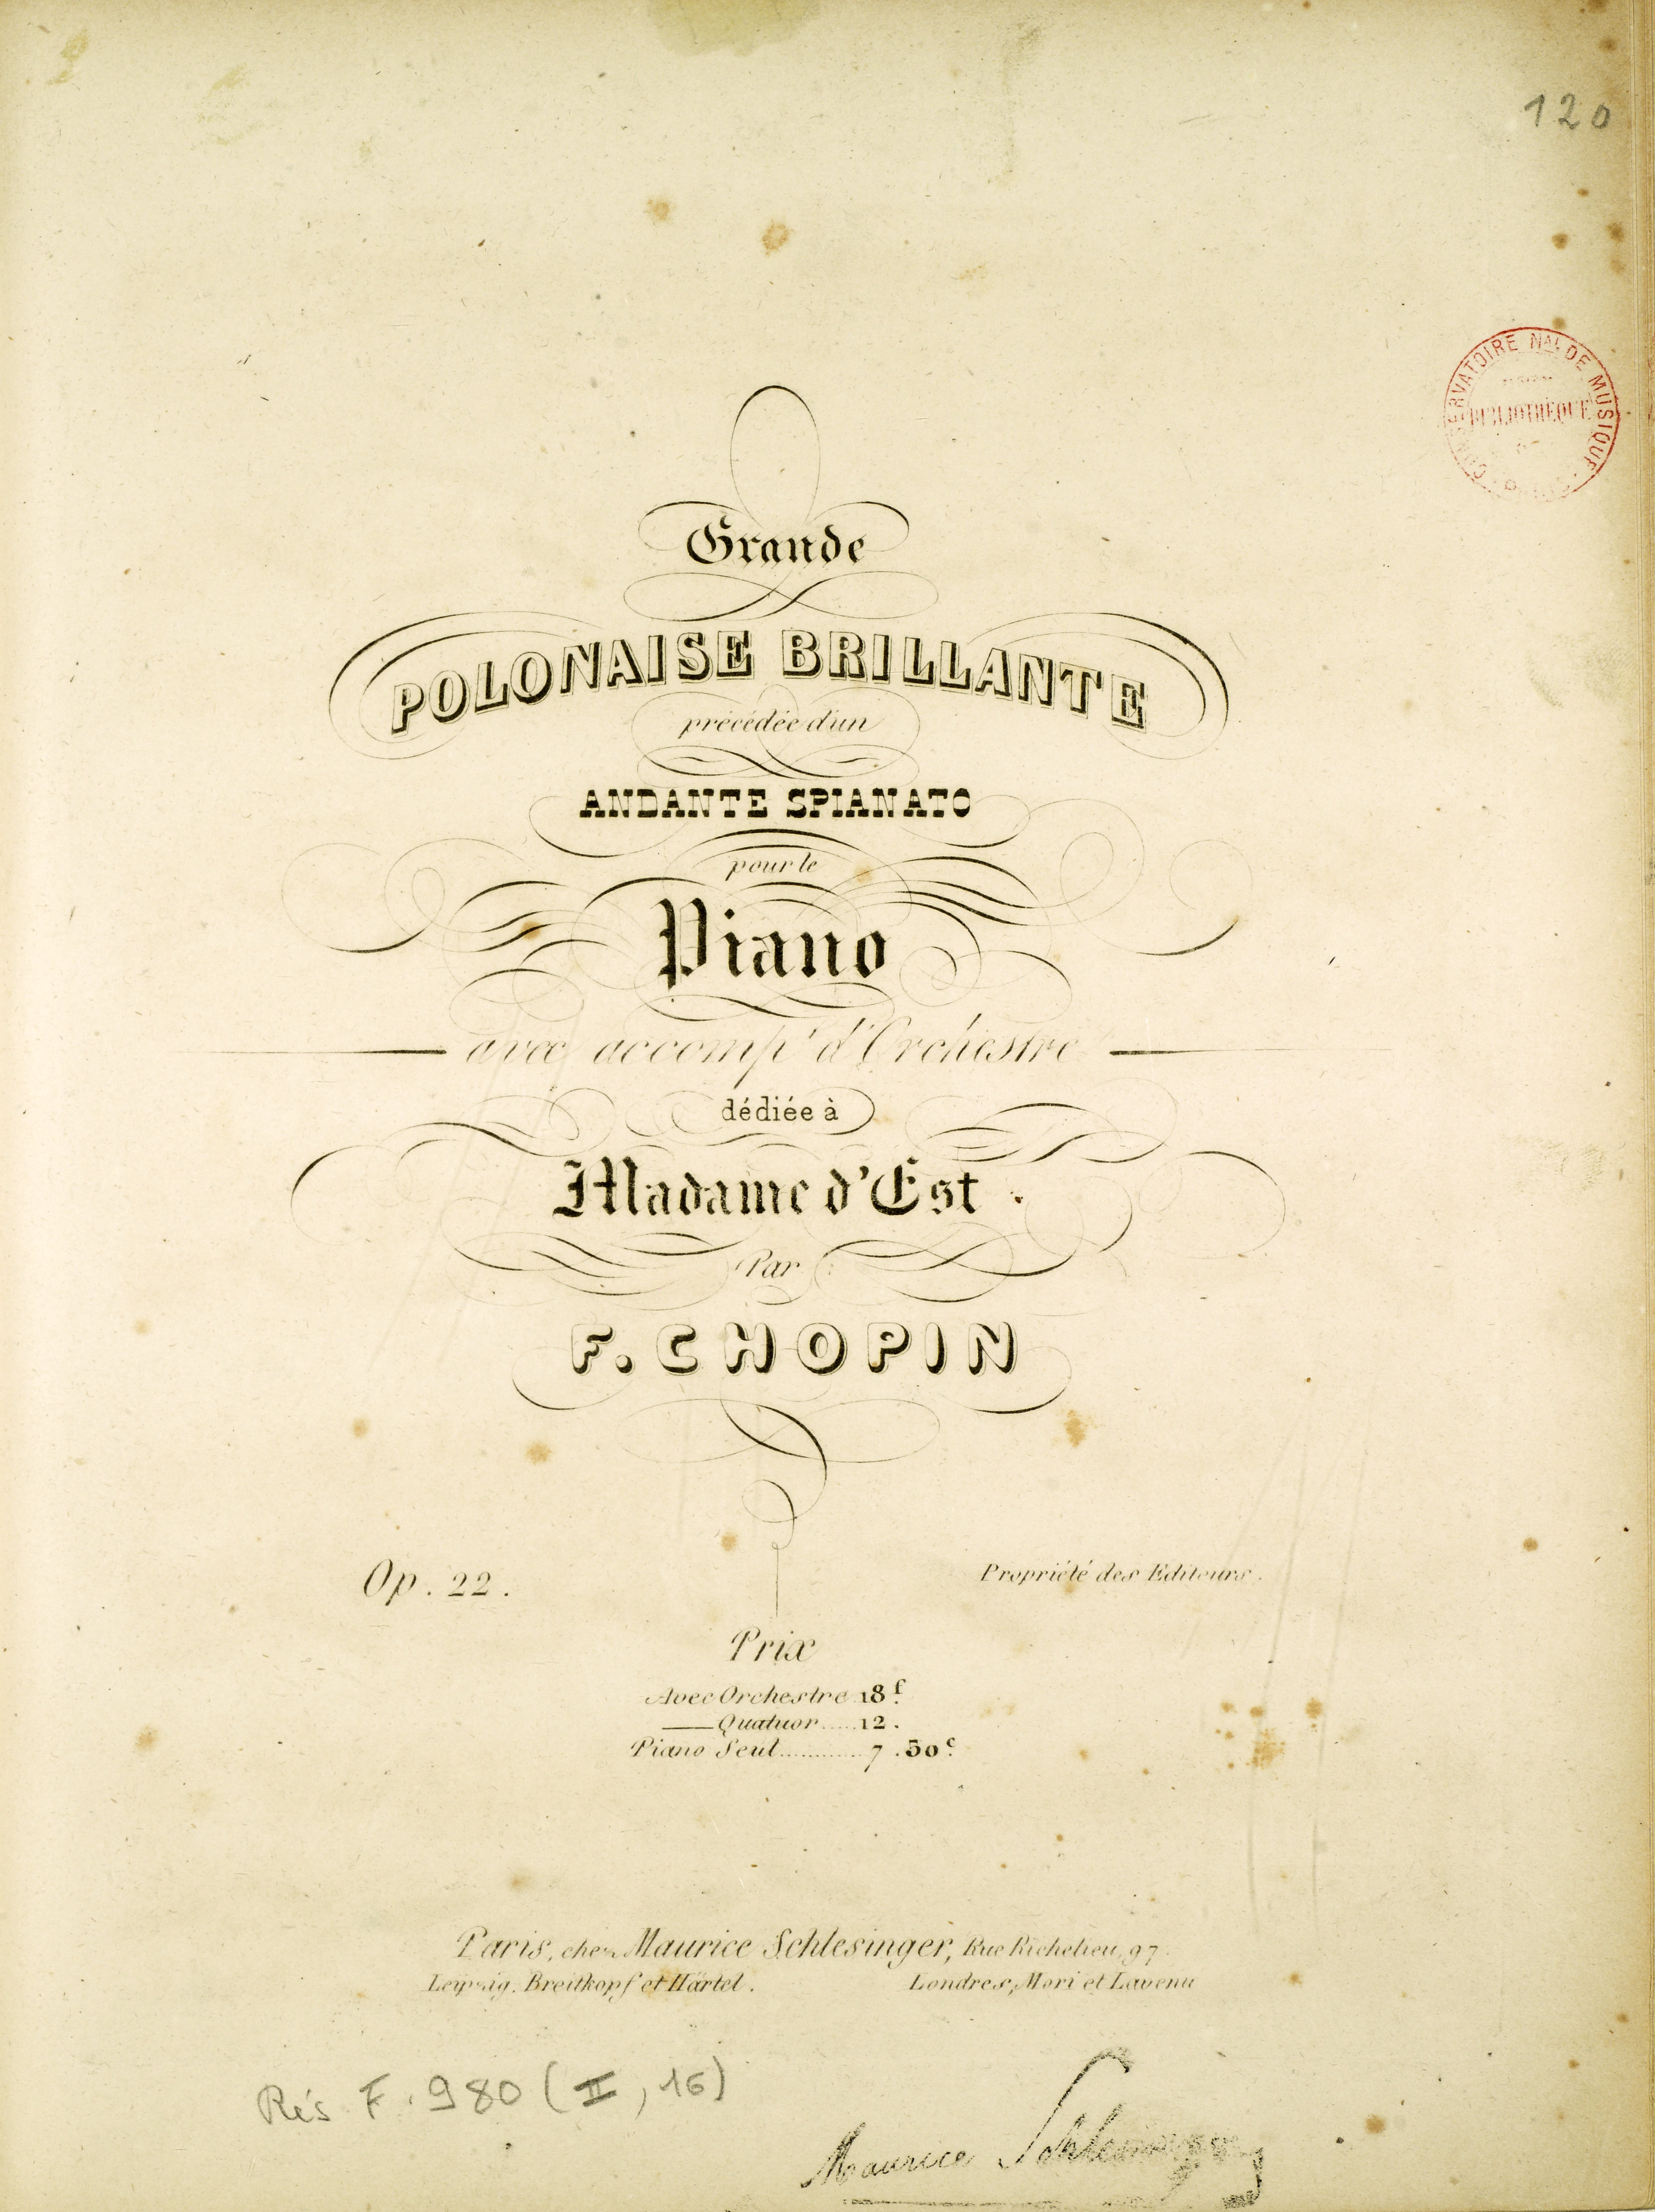 120
CONSERVATOIRE NAL DE MUSIQUE
BIBLIOTHÈQUE
Grande
POLONAISE BRILLANTE
précédée d'un
ANDANTE SPIANATO
pour le
Piano
avec accompt d'Orchestre
dédiée à
Madame d'Est
Par
F. CHOPIN
Op. 22.
Propriété des Editeurs.
Prix
Avec Orchestre 18f.
Quatuor.....12.
Piano Seul............7.50c.
Paris, chez Maurice Schlesinger, Rue Richelieu, 97.
Leipzig. Breitkopf et Härtel. Londres, Mori et Lavenu
Rés F. 980 (II, 16)
Maurice Schlesinger